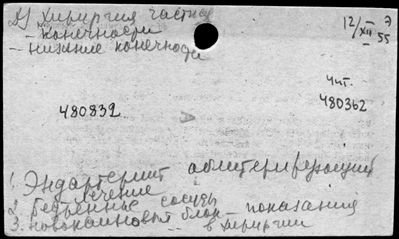 2) Хирургия частная
- конечности
- нижние конечности
12/XII 55
Э
Чит.
480839
480362
1. Эндартериит облитерирующий
- лечение
2. Бедренные сосуды
3. Новокаиновый блок - показания
в хирургии